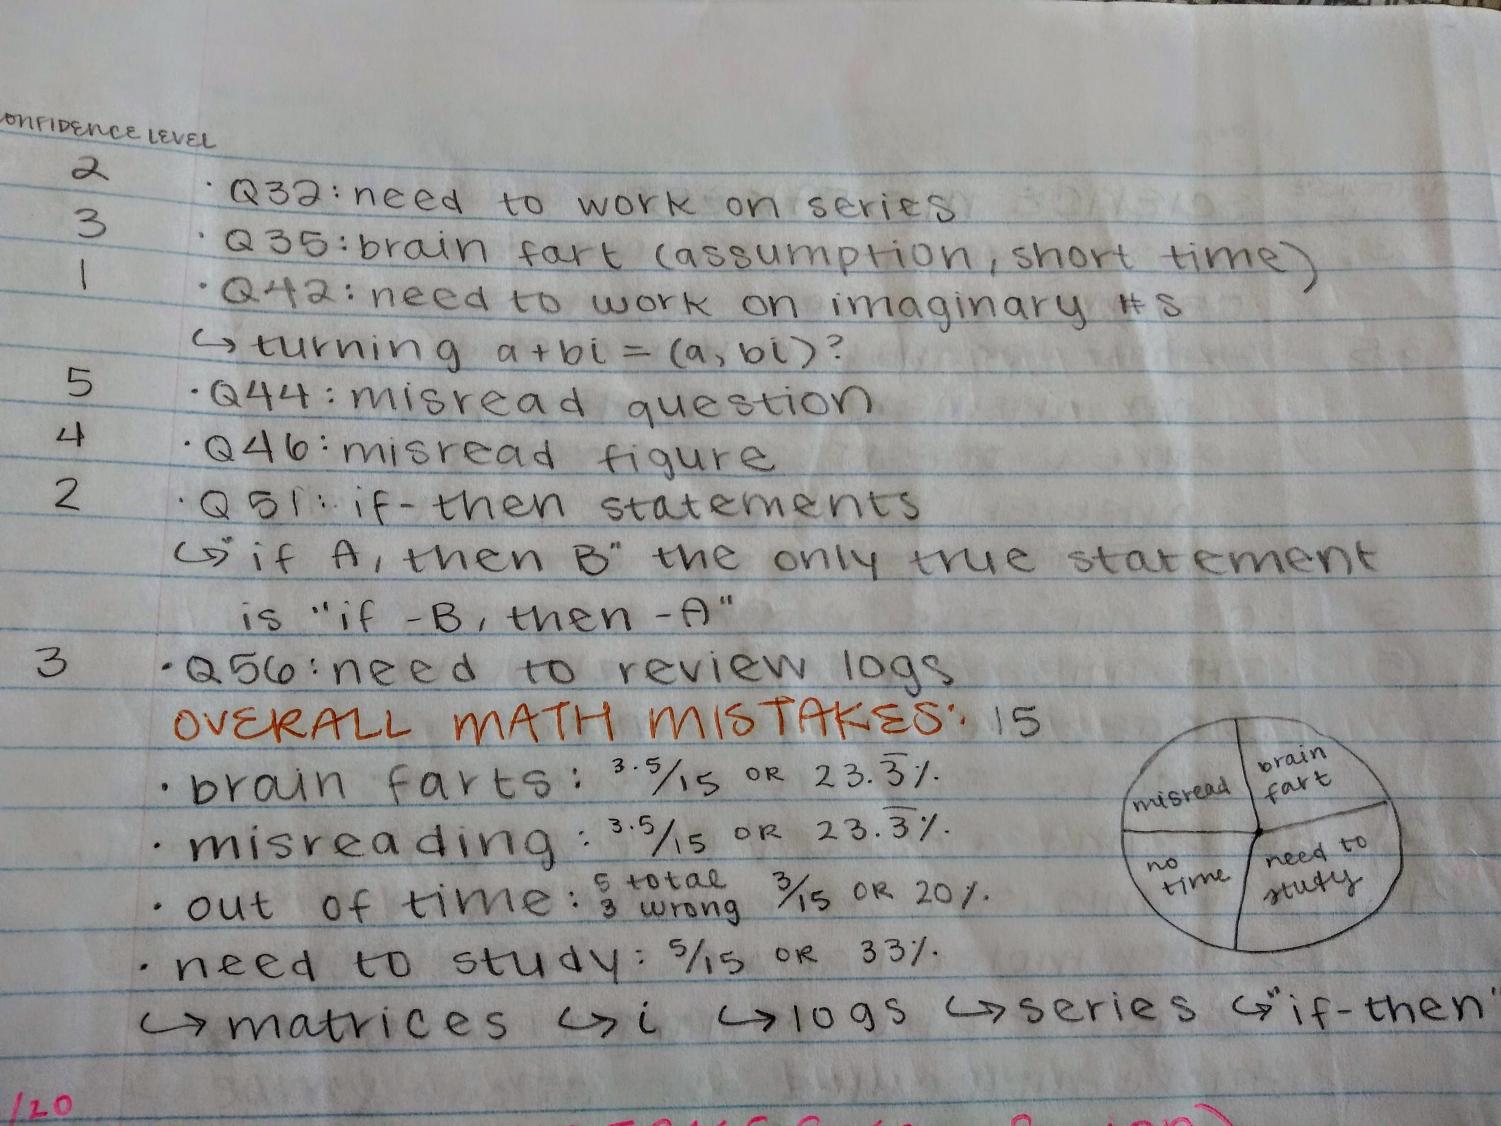 ONFIDENCE LEVEL
2 · Q32: need to work on series
3 · Q35: brain fart (assumption, short time)
1 · Q42: need to work on imaginary #s
↪ turning a+bi = (a, bi)?
5 · Q44: misread question
4 · Q46: misread figure
2 · Q51: if-then statements
↪ "if A, then B" the only true statement
is "if -B, then -A"
3 · Q56: need to review logs
OVERALL MATH MISTAKES: 15
· brain farts: 3.5/15 OR 23.3̅%.
· misreading: 3.5/15 OR 23.3̅%.
· out of time: 5 total 3/15 OR 20%.
3 wrong
· need to study: 5/15 OR 33%.
↪ matrices ↪ i ↪ logs ↪ series ↪ "if-then"
misread
brain
fart
no
time
need to
study
/20